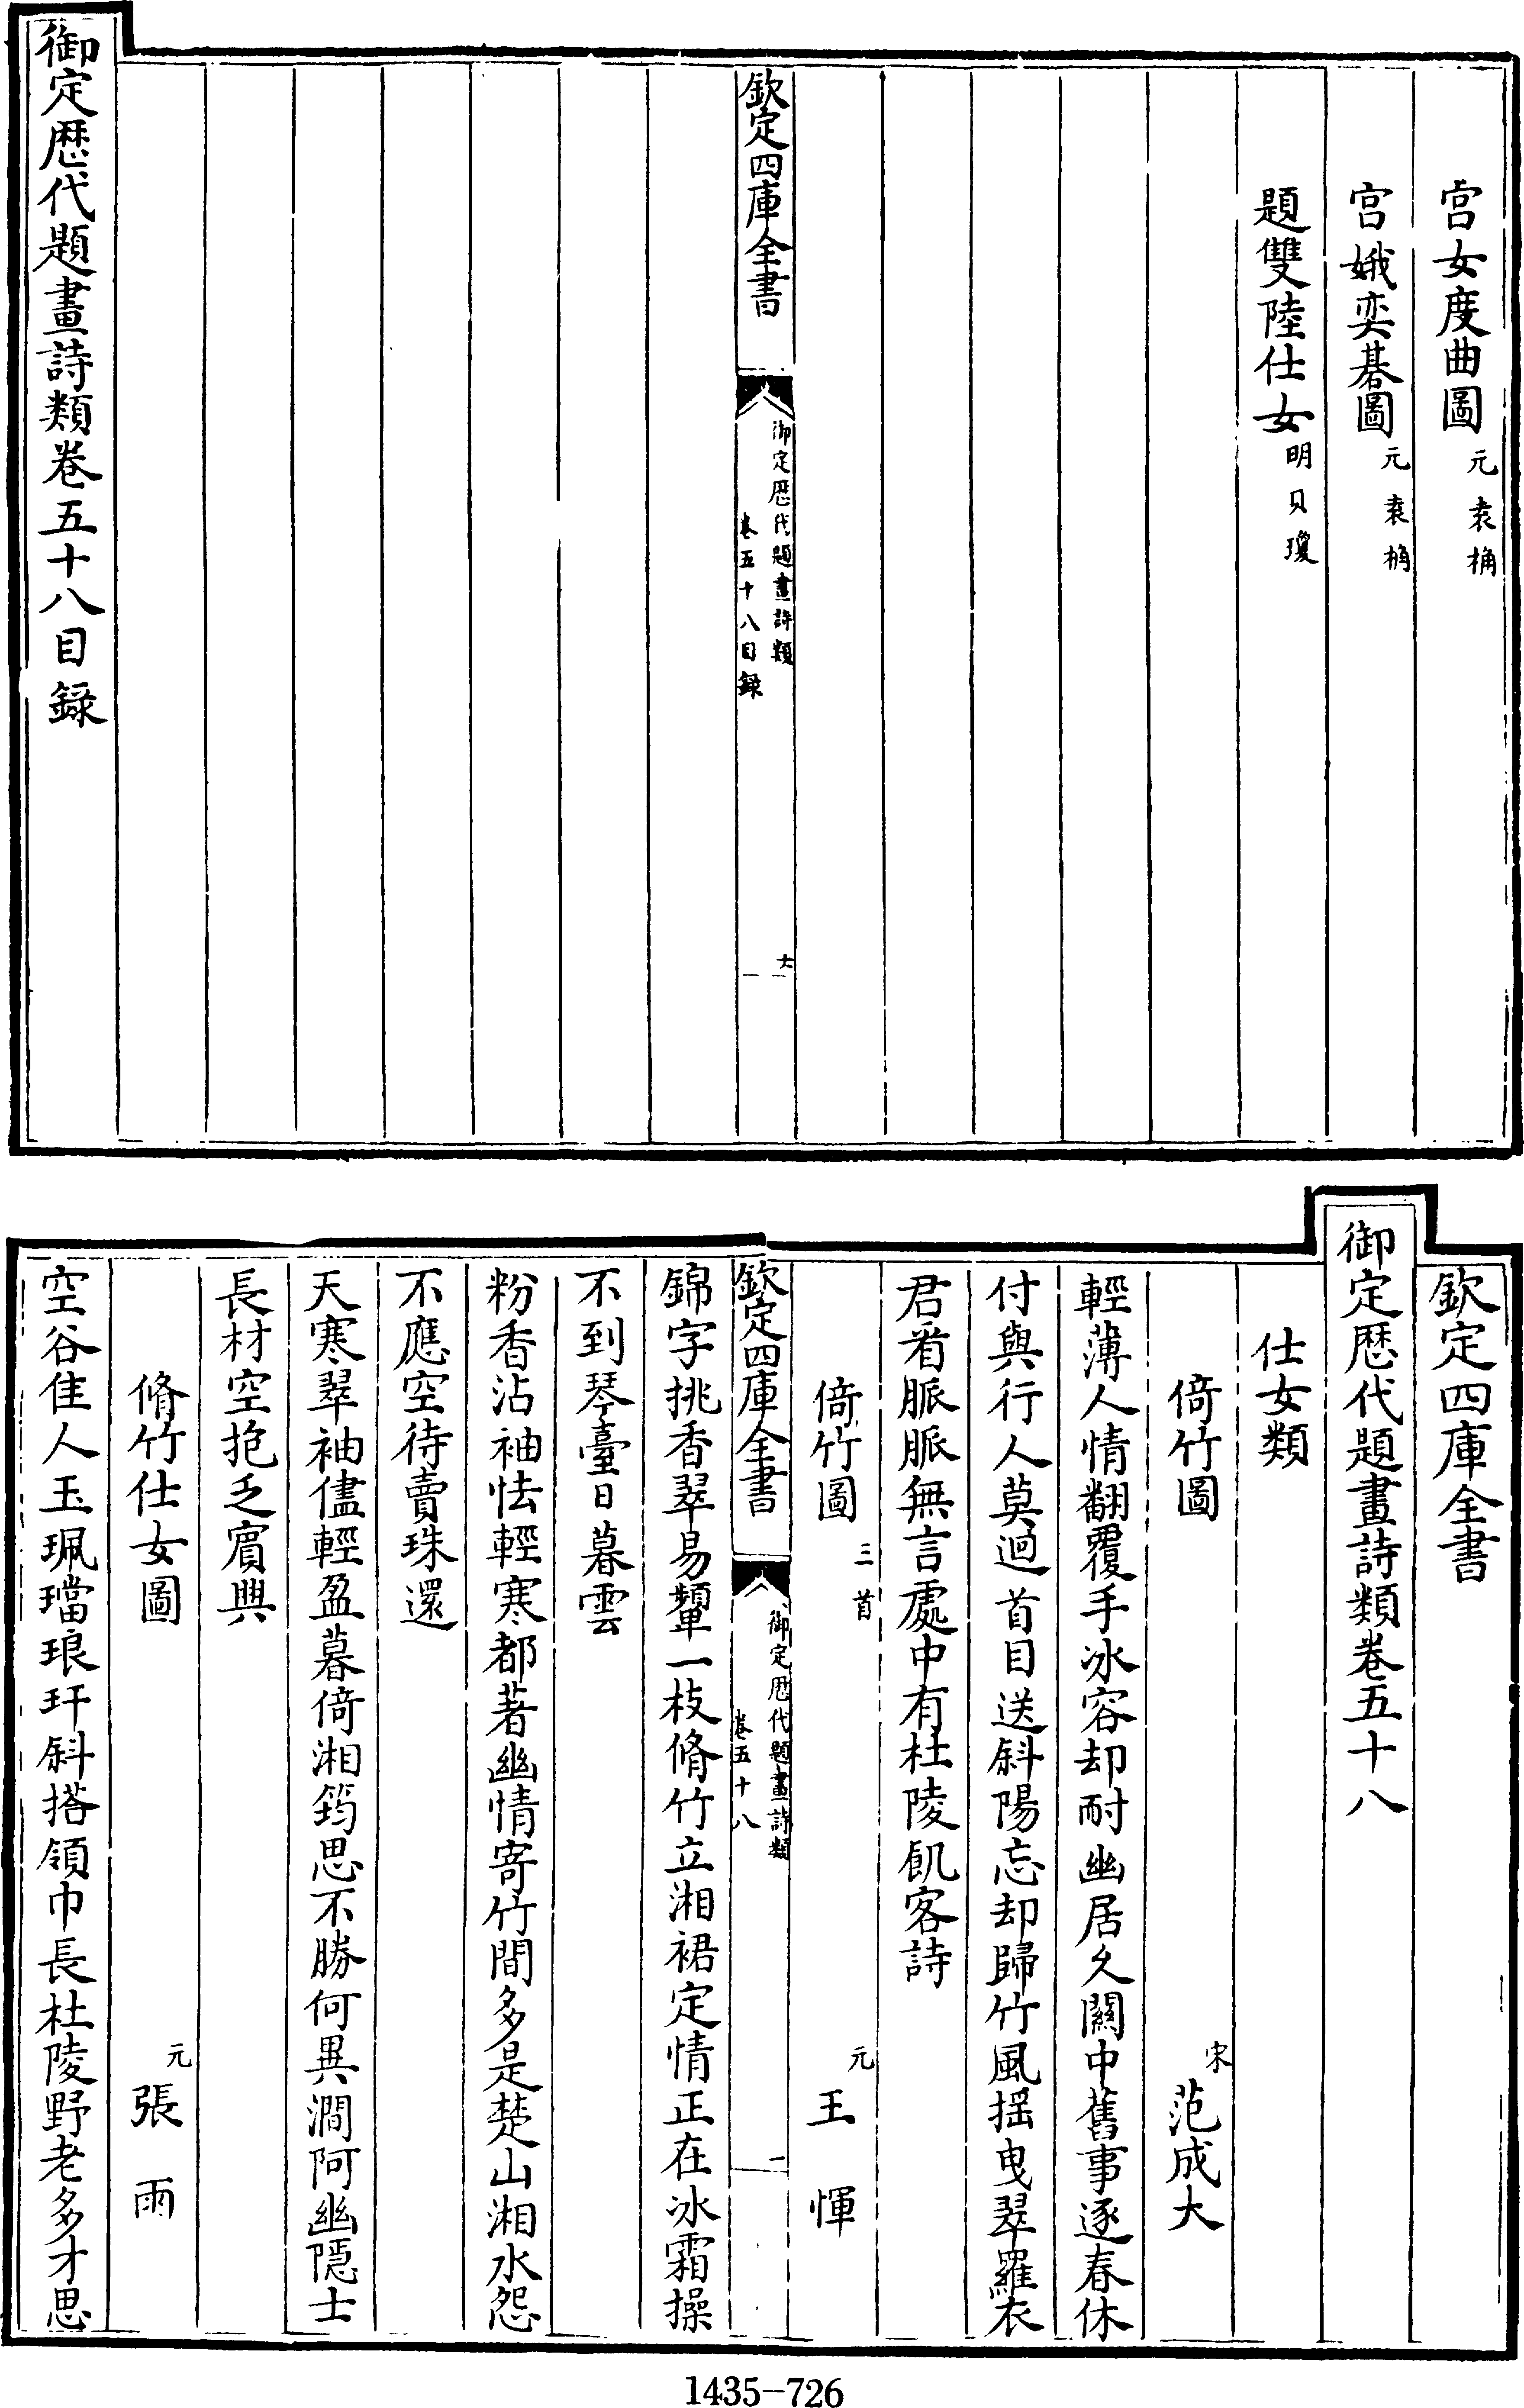 宫女度曲圖元袁桷
宫娥奕碁圖元袁桷
題雙陸仕女明貝瓊
欽定四庫全書
御定歷代題畫詩類
卷五十八目錄
十
御定歷代題畫詩類卷五十八目錄
欽定四庫全書
御定歷代題畫詩類卷五十八
仕女類
倚竹圖 宋范成大
輕薄人情翻覆手冰容却耐幽居久關中舊事逐春休
付與行人莫迴首目送斜陽忘却歸竹風摇曳翠羅衣
君看脈脈無言處中有杜陵飢客詩
倚竹圖三首 元王惲
欽定四庫全書
御定歷代題畫詩類
卷五十八
一
錦字挑香翠易顰一枝脩竹立湘裙定情正在冰霜操
不到琴臺日暮雲
粉香沾袖怯輕寒都著幽情寄竹間多是楚山湘水怨
不應空待賣珠還
天寒翠袖儘輕盈暮倚湘筠思不勝何異澗阿幽隱士
長材空抱乏賓興
脩竹仕女圖 元張雨
空谷佳人玉珮璫琅玕斜搭領巾長杜陵野老多才思
1435-726